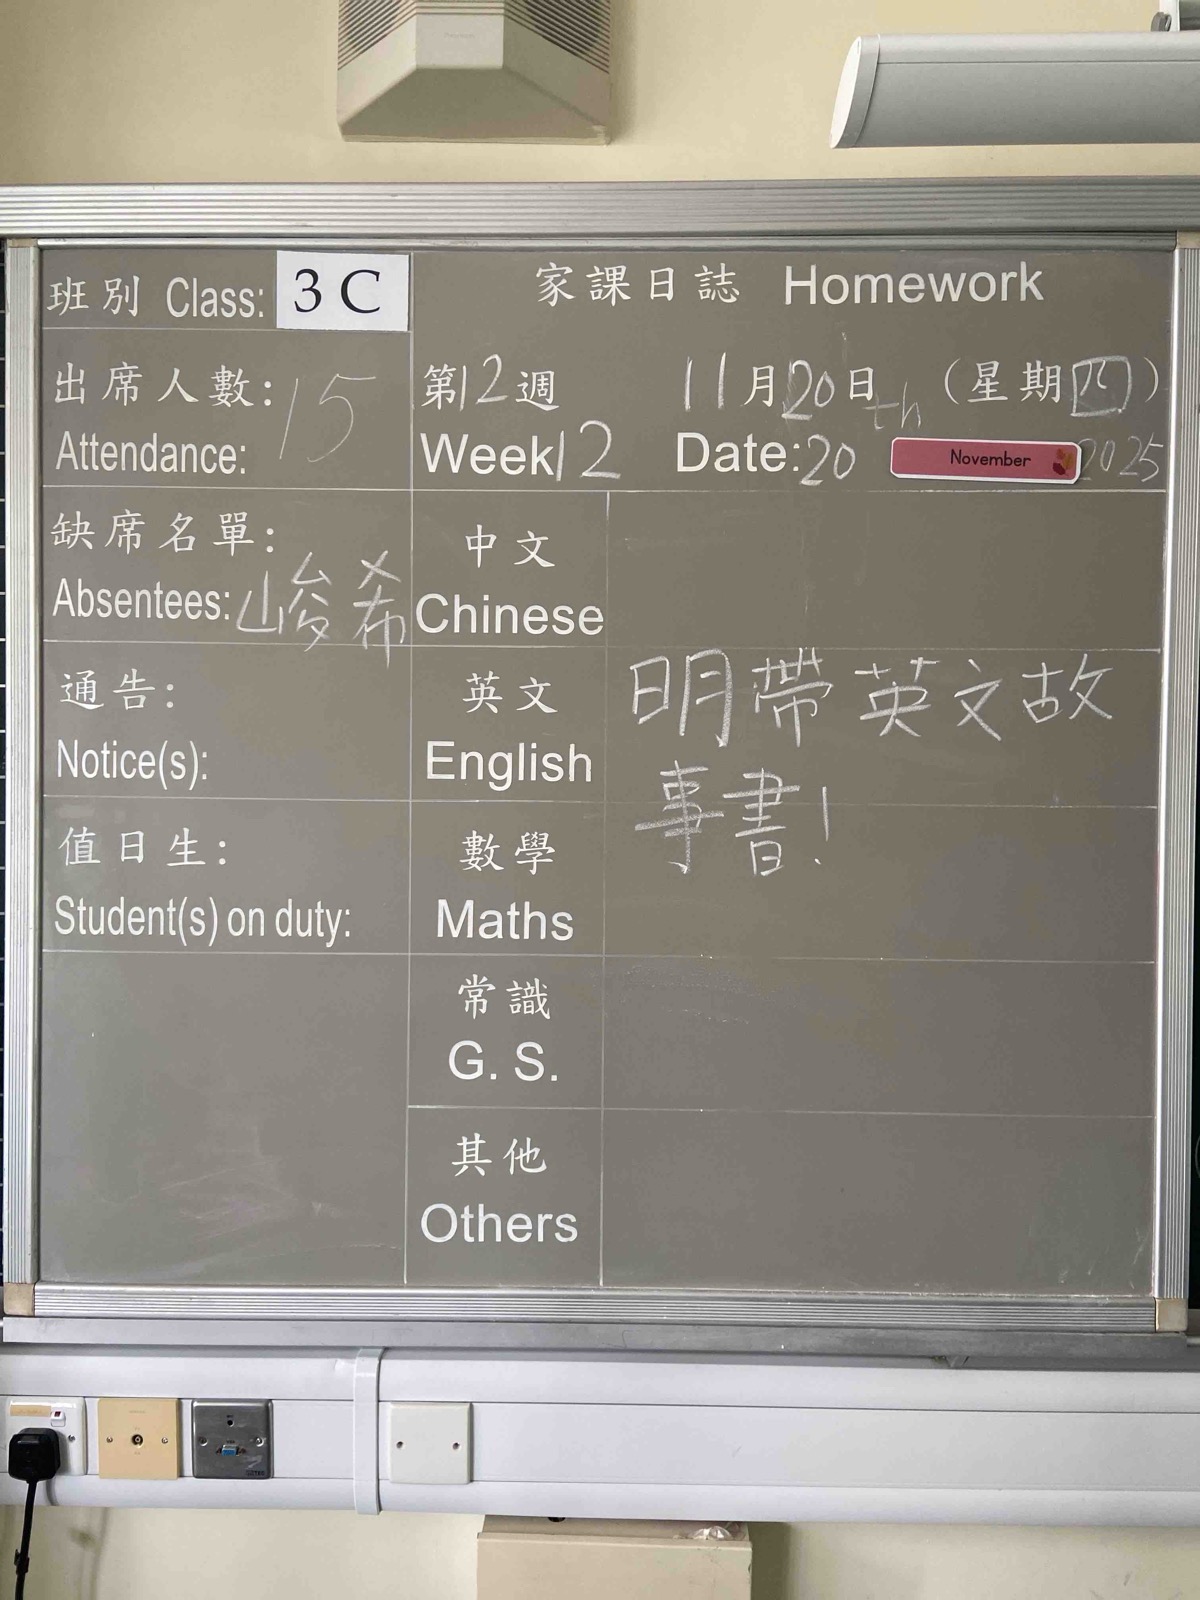 班別 Class: 3 C
家課日誌 Homework
出席人數: 15
Attendance:
第12週 11月20日 (星期四)
Week12 Date:20th November 2025
缺席名單:
Absentees: 峻希
中文
Chinese
通告:
Notice(s):
英文
English
明帶英文故
事書!
值日生:
Student(s) on duty:
數學
Maths
常識
G. S.
其他
Others